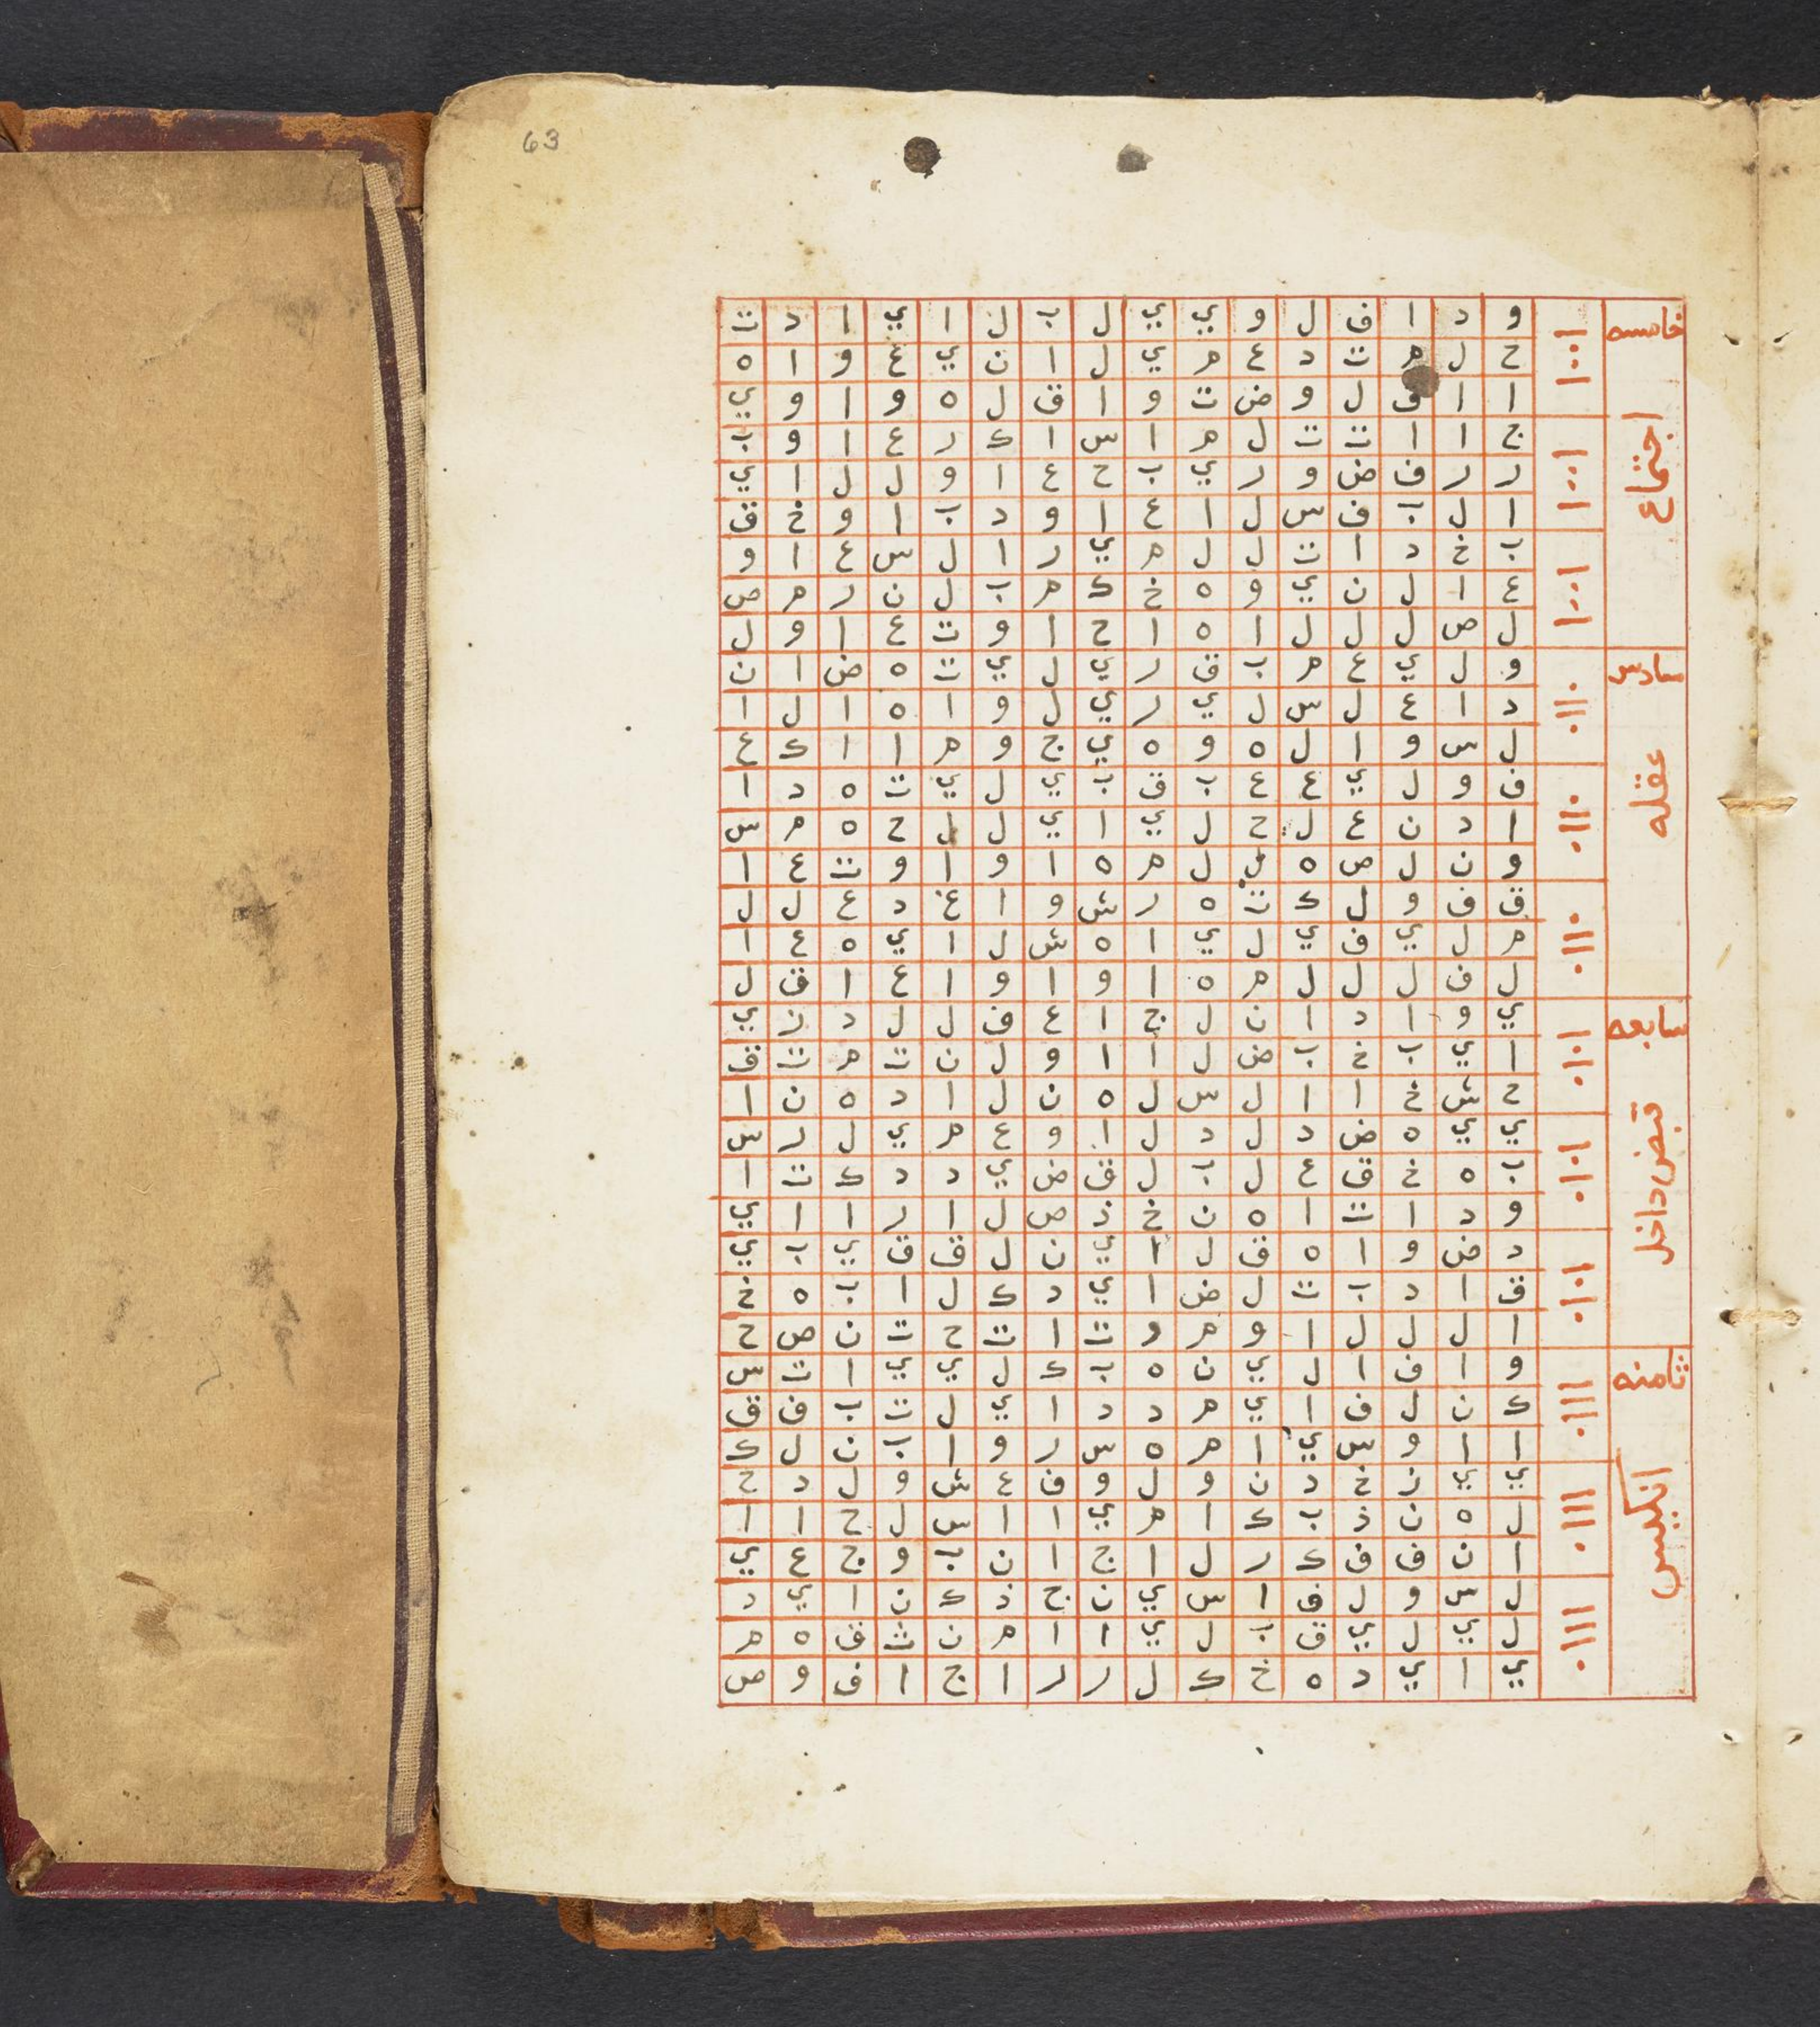 63
خامسه
اجتماع
و د ا ف ل و ي ي ل ب ل ا ي ا د ت
ح ل م ت د ع م ي ل ا ن ي ع و ا ه
ا ا ف ل و ض ت و ا ق ل ه و ا و ي
ج ا ا ت ت ل م ا س ا ك ر ع ا و ب
ر ر ف ض و ر ي ب ح ع ا و ل ل ا ي
ا ل ب ف س ل ا ع ا و د ب ا و خ ق
ب خ د ا ت ل ل م ي ر ا ل س ع ا و
ع ا ل ن ي و ه خ ك م ب ل ن ر م ص
ل ص ل ل ل ا ه ا ح ا و ت ع ا و ل
سادس
عقله
و ل ي ع م ب ق ر ي ل ي ت ه ض ا ن
د ا ع ل س ل ي ر ي ل و ا ه ا ل ا
ل س و ا ل ه و ه ي ج و م ا ا ك ع
ف و ل ي ع ع ب ق ب ي ل ي ت ه د ا
ا د ن ع ل ح ل ي ا ي ل ل ح ه م س
و ن ل ص ه ل ل م ه ا و ا و ت ع ا
ق ف و ل ك ت ه ر ش و ا غ د ع ل ل
م ل ي ف ي ل ي ا ه ش ل ا ي ه ع ا
ل ف ل ل ل م ه ا و ا و ا ع ا ق ل
سابعه
قبض داخل
ي و ا د ا ن ل ج ا ع ف ل ل د ن ي
ا ي ب خ ب ض ل ا ا و ل ن ت م ت ق
ح ش خ ا ا ل س ل ه ن ل ا د ه ن ا
ي ي ه ض د ل د ل ا و ع م ي ل ر س
ب ه خ ق ع ل ب ل ق ض ي د د ك ت ا
و د ا ت ا ه ن خ ذ ص ل ا ر ا ا ي
د ض و ا ه ق ل ا ي ن ل ق ق ي ب ي
ق ا د ب ت ل ض ا ي د ك ل ا ب ه خ
ا ل ل ل ا و م و ت ا ت ح ت ن ص ح
ثامنه
انكيس
و ا ف ا ل ي ن ه ب ك ل ي ي ا ت س
ك ن ل ف ا ي م د د ا ي ل ت ب ف ق
ا ا و س ي ا م ه س ر و ا ب ن ل ك
ي ي ن خ د ن و ل و ف ع ش و ل د ح
ل ه ن ذ ب ك ا م ي ا ا س ل ح ا ا
ا ن ف ف ك ر ل ا ج ا ن ب و ج ع ي
ل س و ل ف ا س ي ن ج ذ ك ن ا ي د
ل ي ل ي ق ب ل ي ا ا م ن ث ف ه م
ي ا ي د ه خ ك ل ر ر ا ج ا ف و ص